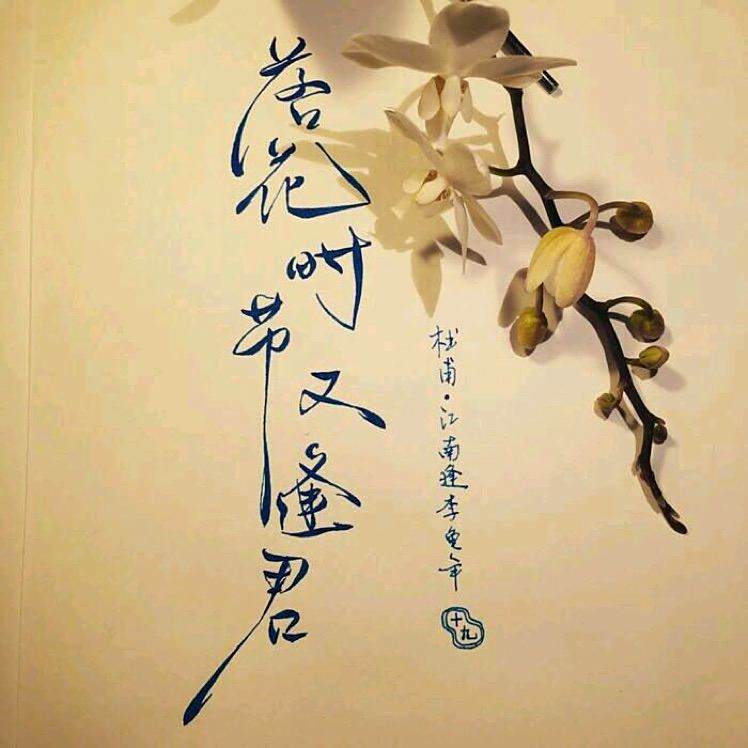 落花时节又逢君
杜甫·江南逢李龟年
十九